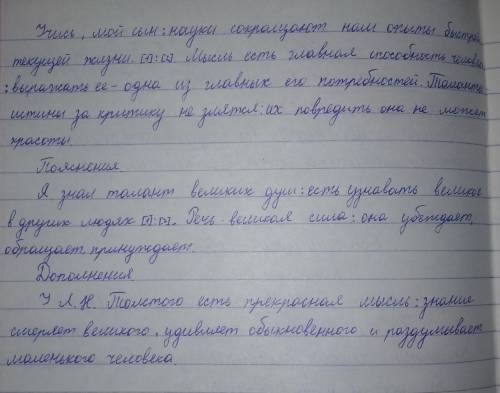 Учись, мой сын: науки сокращают нам опыты быстро
текущей жизни. [п]:[п] Мысль есть главная способность челове
: выражать ее - одна из главных его потребностей. Таланты
истины за критику не злятся: их повредить она не может
красоты.
Пояснения
Я знал талант великих душ: есть узнавать великое
в других людях [п]:[п]. Речь великая сила: она убеждает,
обращает, принуждает.
Дополнения
У Л. Н. Толстого есть прекрасная мысль: знание
смиряет великого, удивляет обыкновенного и раздумывает
маленького человека.